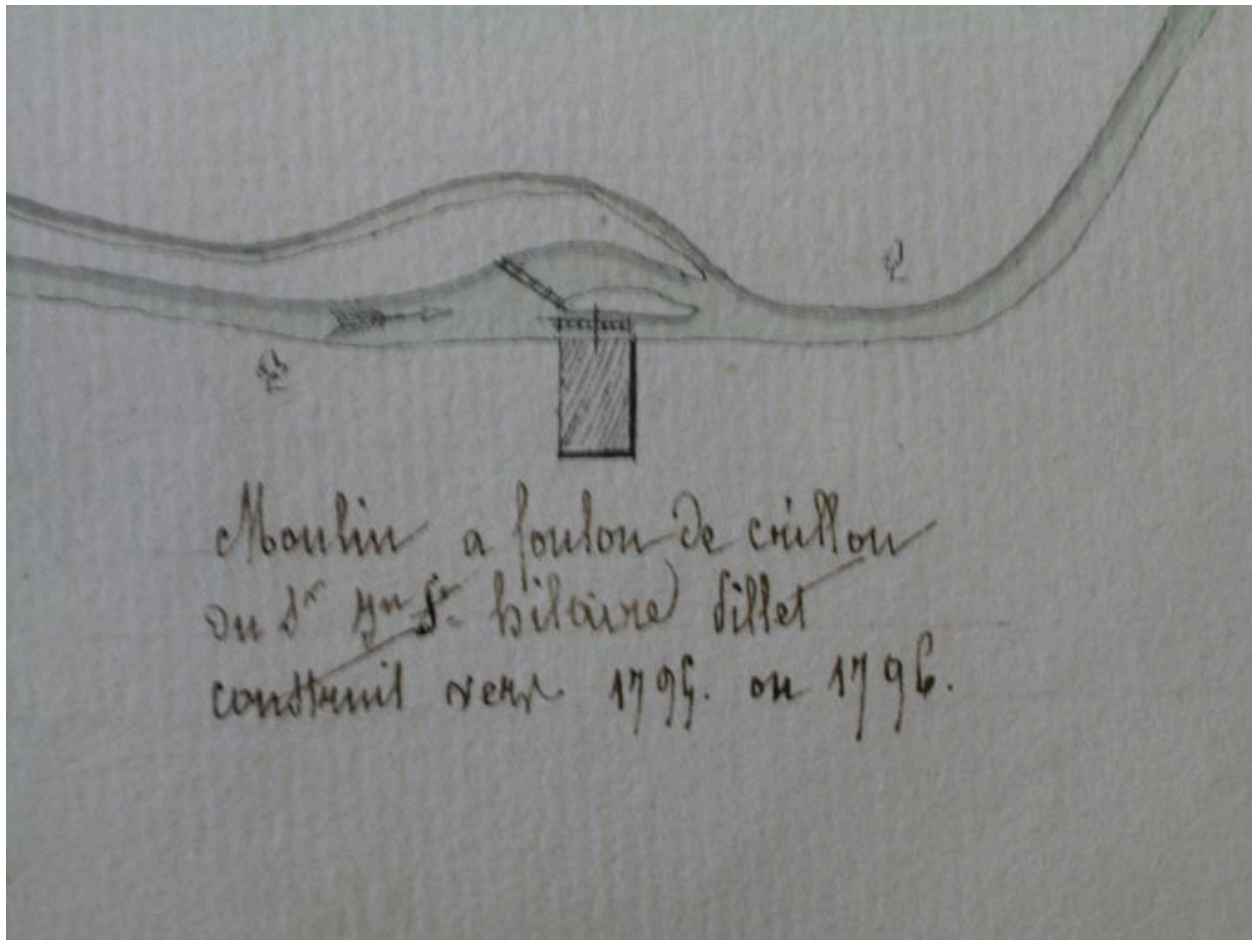 Moulin a foulon de crillon
du Sr Jn Fs hilaire Fillet
construit vers 1795. ou 1796.